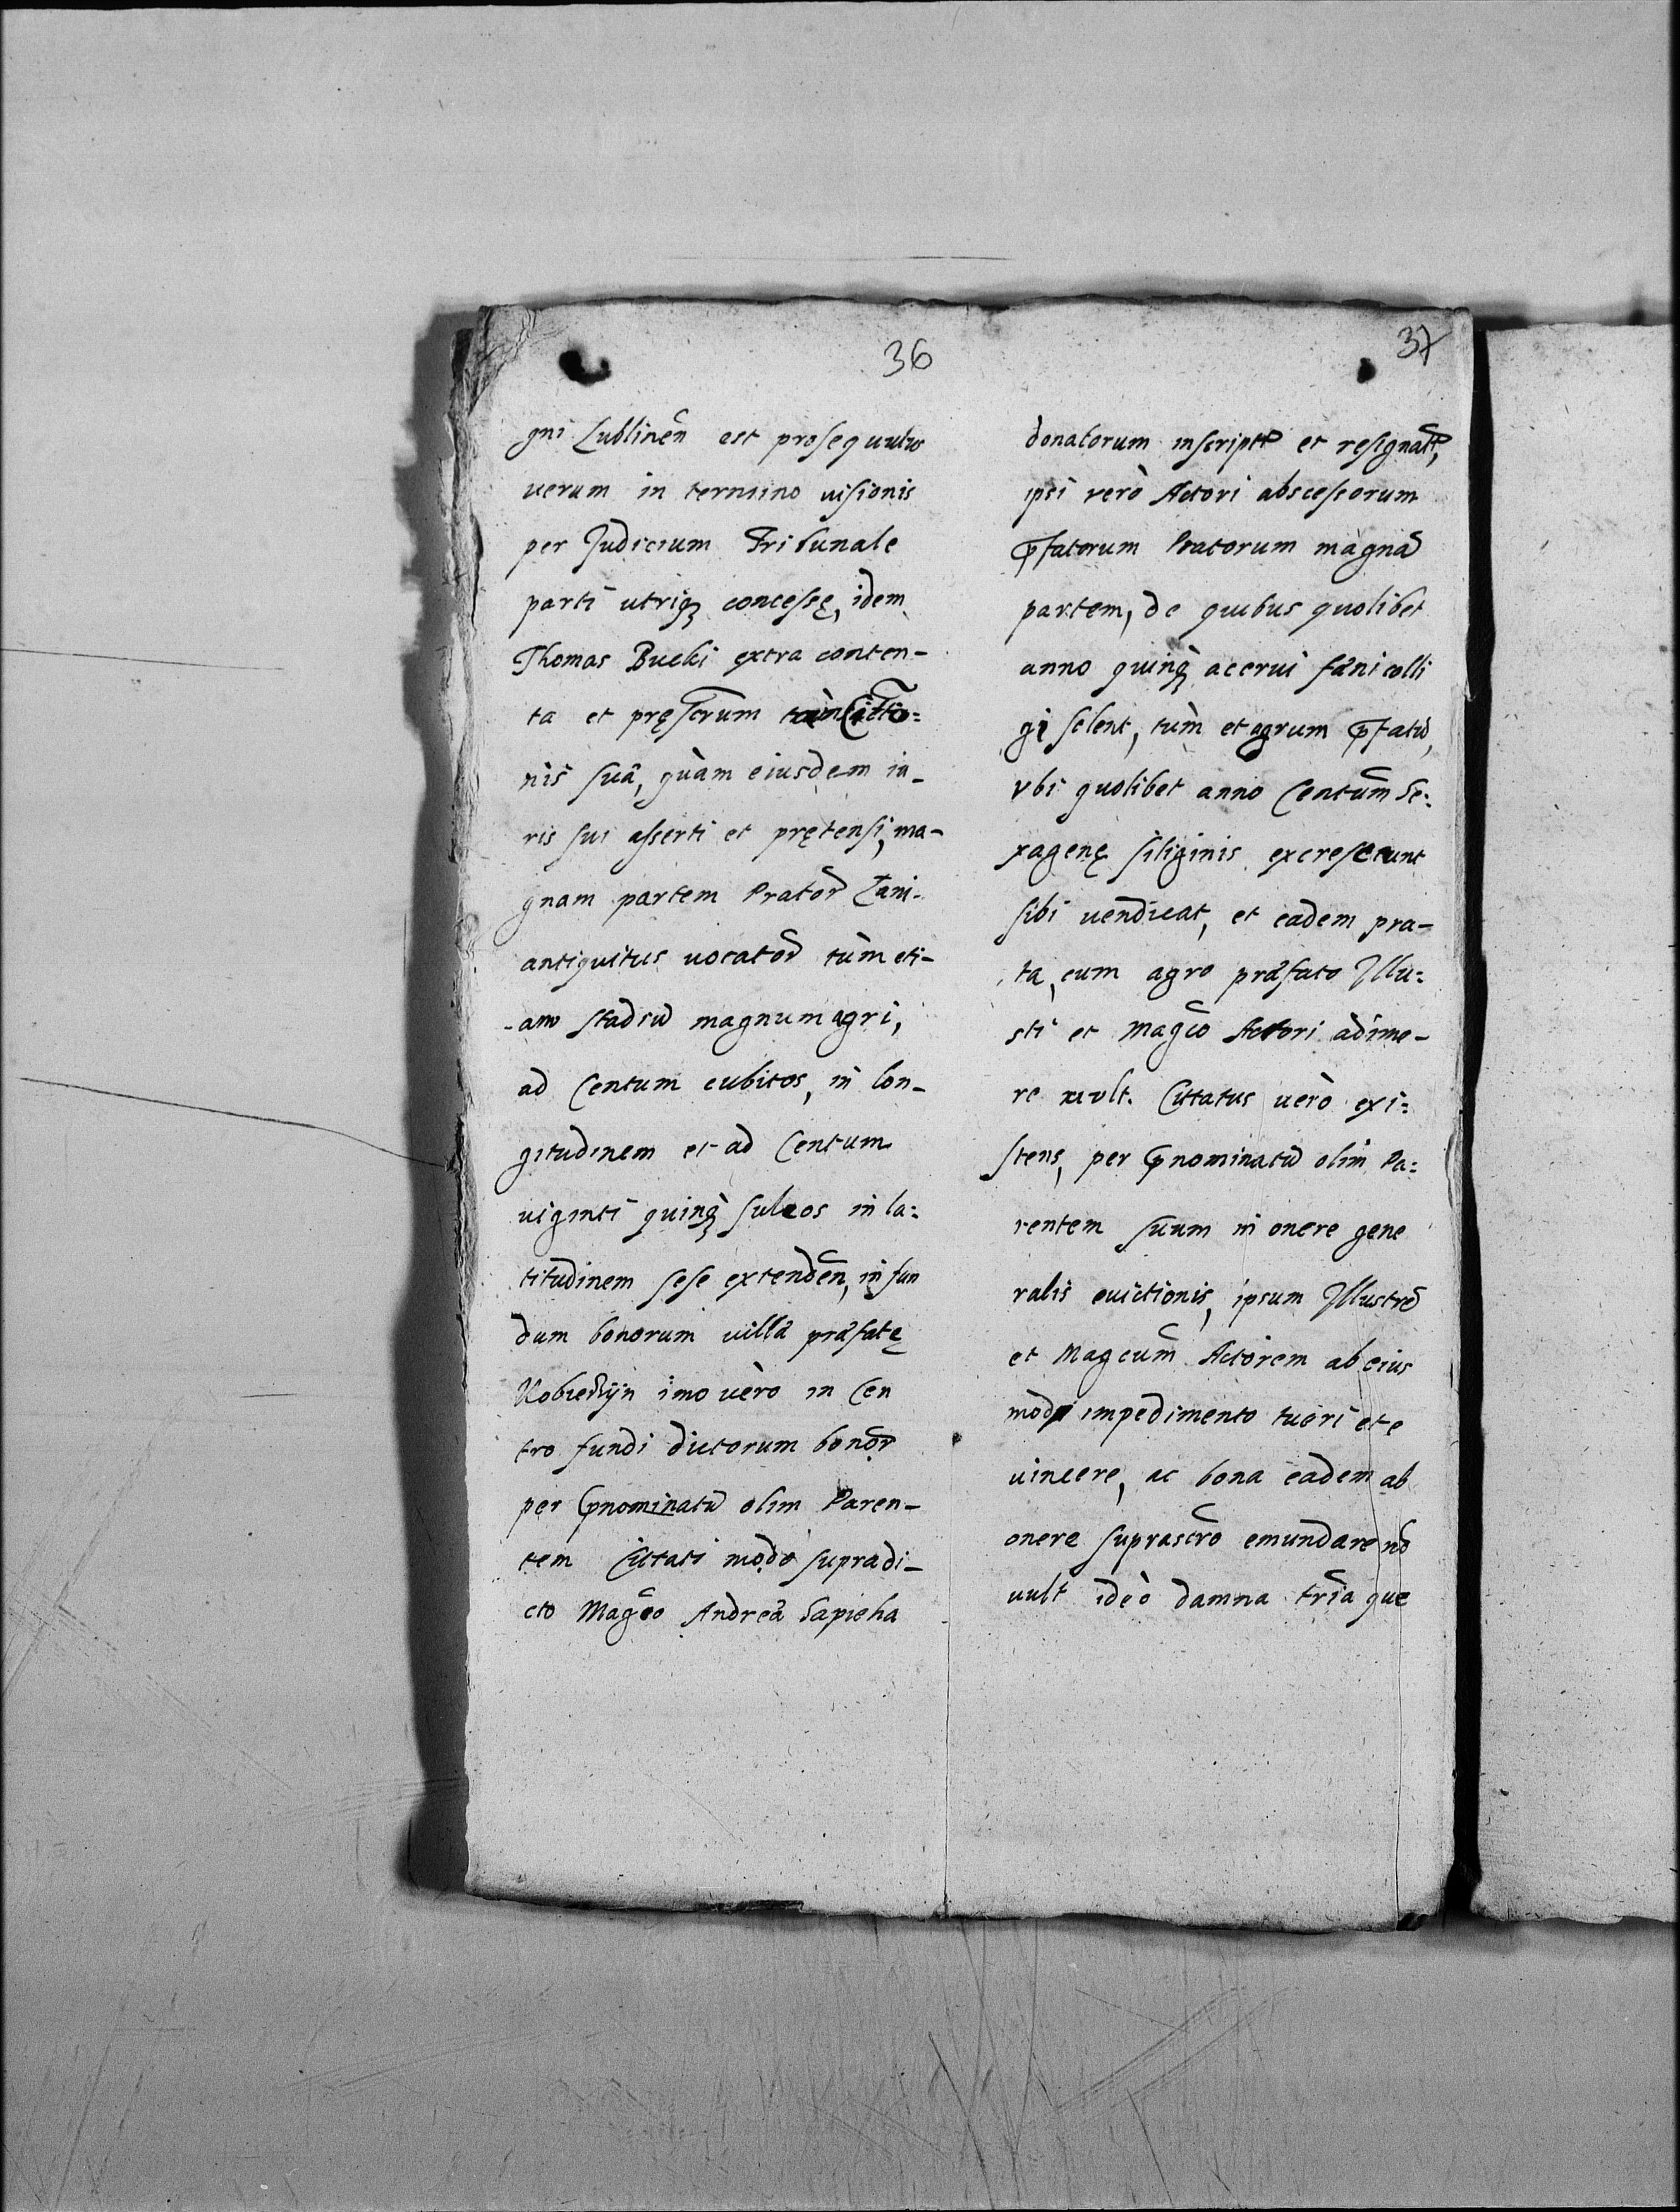 36
gni Lublineñ est prosequutus
uerum in termino uisionis
per Judicium Tribunale
parti utriq₃ concessę, idem
Thomas Bucki extra conten-
ta et pręscrum tàm Citatio=
nis suã, quàm eiusdem iu-
ris sui asserti et prętensi, ma-
gnam partem Prator̃ Łani-
antiquitus uocator̃ tùm eti-
-am stadiũ magnum agri,
ad Centum cubitos, in lon-
gitudinem et ad Centum
uiginti quinq₃ sulcos in la=
titudinem sese extendeñ, in fun
dum bonorum uillæ præfatę
imo uèro in Cen
tro fundi dictorum bonor̃
per p̃nominatũ olim Paren-
tem Cittati modò supradi-
cto Mag̃co Andreæ Sapieha
37
donatorum inscript et resignat,
ipsi verò Actori abscessorum
p̃fatorum Pratorum magnã
partem, de quibus quolibet
anno quinq₃ acerui fæni colli
gi solent, tùm et agrum p̃fatũ,
vbi quolibet anno Centum Se=
xagenę siliginis excrescunt
sibi uendicat, et eadem pra-
ta, cum agro præfato Illu=
sti et Mag̃co Actori adime-
re uult. Cittatus uèrò exi=
stens, per p̃nominatũ olim Pa=
rentem suum in onere gene
ralis euictionis, ipsum Illustrẽ
et Magcum̃ Actorem ab eius
modi impedimento tueri et e
uincere, ac bona eadem ab
onere suprascro emundare nõ
uult ideò damna tr̃ia que